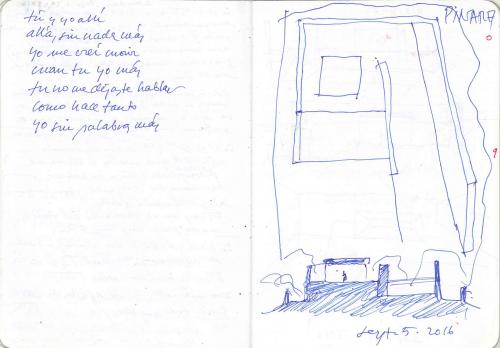 tú y yo allí
allá, sin nada más
yo me creí morir
tu yo más
tu no me dejaste hablar
como hace tanto
yo sin palabra más
Sept. 5. 2016